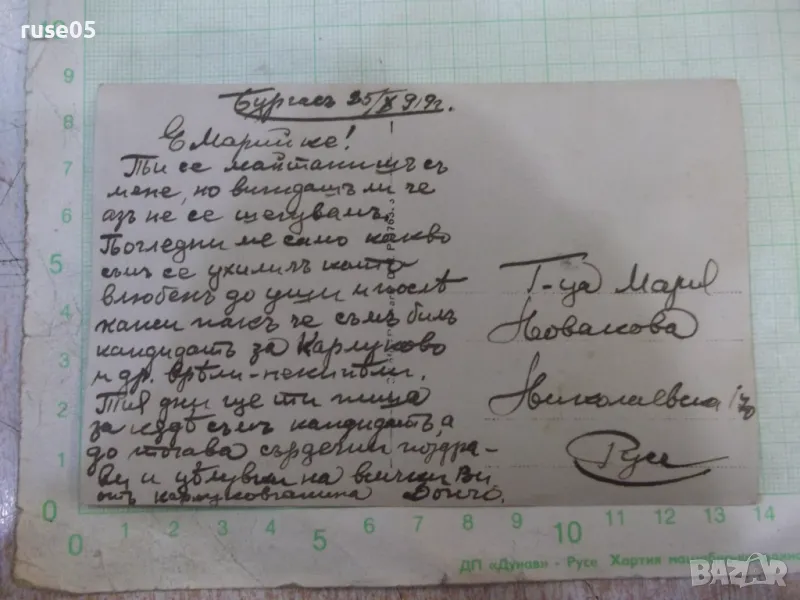 ruse05
Бургасъ 25/X 919г.
Е Марийке!
Ти се майтапишъ съ
мене, но виждашъ ли че
азъ не се шегувамъ.
Погледни ме само какво
съмъ се ухилилъ като
влюбенъ до уши и послѣ
кажи пакъ че съмъ билъ
кандидатъ за Карлуково
и др. врѣли-некипѣли.
Тия дни ще ти пиша
за кѫдѣ съмъ кандидатъ, а
до тогава сърдечни поздра-
ви и цѣлувки на всички Ви
отъ карлуковчанина Дончо.
Г-ца Мария
Новакова
Николаевска 170
Русе
ДП «Дунав» - Русе Хартия
BAZAR
9
8
7
6
5
4
3
2
1
0
0 1 2 3 4 5 6 7 8 9 10 11 12 13 14